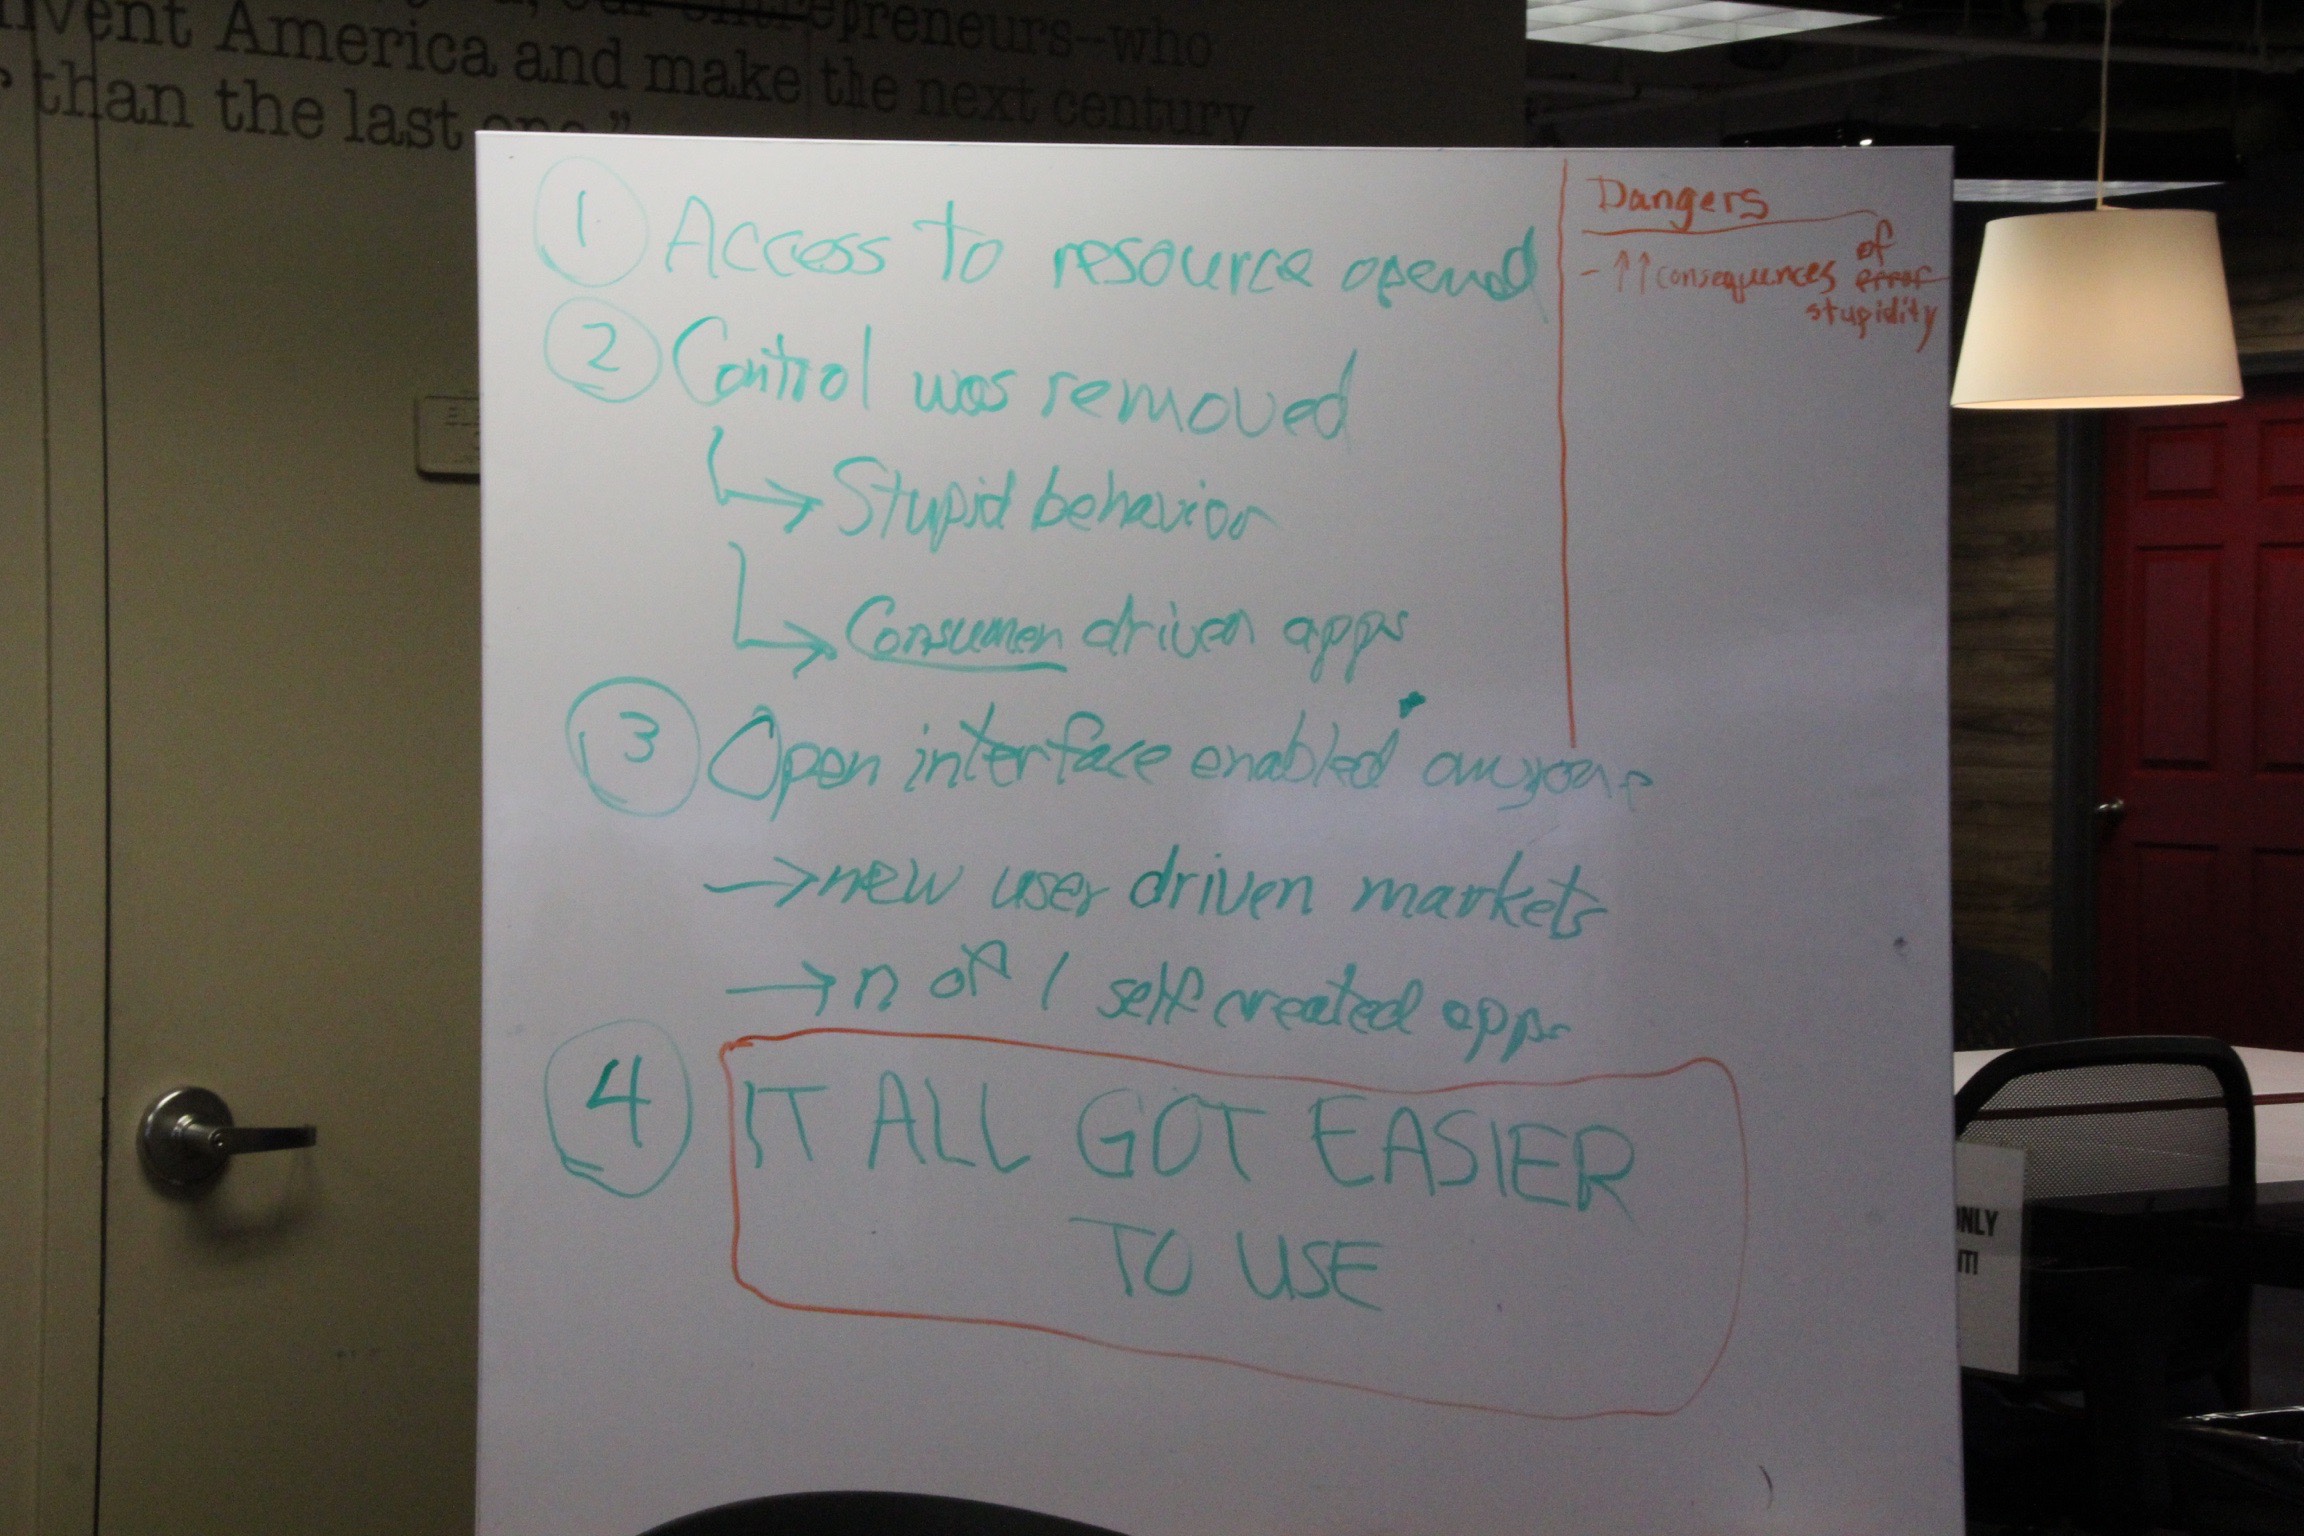 entrepreneurs--who
America and make the next century
than the last one."
1 Access to resource opened
2 Control was removed
Stupid behavior
Consumer driven apps
3 Open interface enabled anyone
→ new user driven markets
→ n of 1 self created apps
4 IT ALL GOT EASIER
TO USE
Dangers
- ↑↑ consequences of
error
stupidity
ONLY
IT!